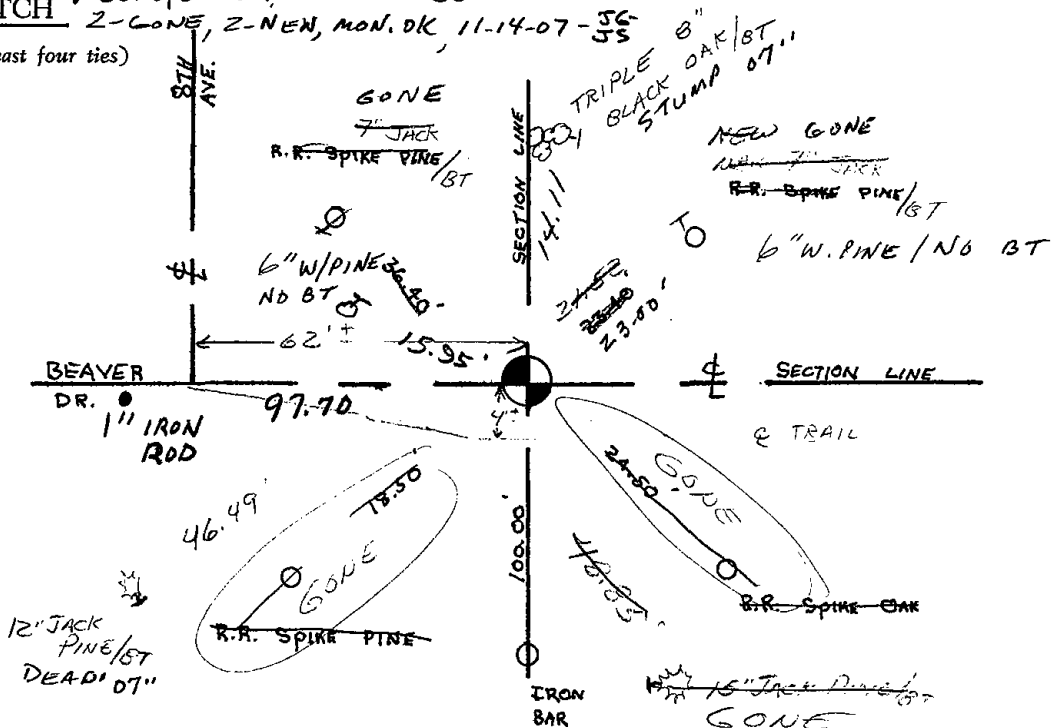 TCH
2-GONE, 2-NEW, MON. OK, 11-14-07 - JG
JS
east four ties)
8TH
AVE.
GONE
7" JACK
R.R. SPIKE PINE
/BT
SECTION LINE
TRIPLE 8"
BLACK OAK/BT
STUMP 07"
14.11
NEW GONE
7" JACK
R.R. SPIKE PINE/BT
6" W. PINE / NO BT
6" W/PINE
NO BT
36.40'
62'±
15.95'
23.40
23.00'
BEAVER
DR.
1" IRON
ROD
97.70
4'±
℄
SECTION LINE
℄ TRAIL
46.49'
18.50
GONE
R.R. SPIKE PINE
12" JACK
PINE/BT
DEAD' 07"
100.00'
IRON
BAR
24.50'
GONE
R.R. SPIKE OAK
48.85'
15" JACK PINE/BT
GONE